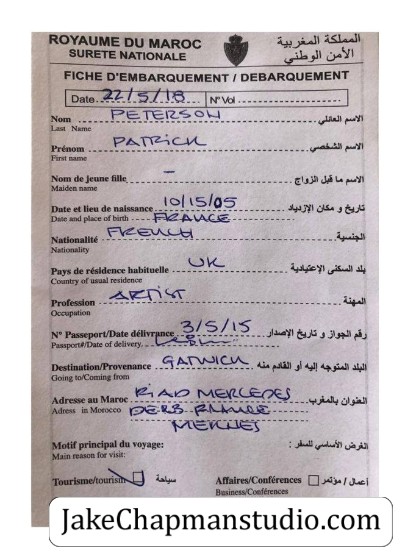 ROYAUME DU MAROC المملكة المغربية
SURETE NATIONALE الأمن الوطني
FICHE D'EMBARQUEMENT / DEBARQUEMENT
Date 22/5/18 N° Vol
Nom PETERSON الاسم العائلي
Last Name
Prénom PATRICK الاسم الشخصي
First name
Nom de jeune fille - الاسم ما قبل الزواج
Maiden name
Date et lieu de naissance 10/15/05 تاريخ و مكان الإزدياد
Date and place of birth FRANCE
Nationalité FRENCH الجنسية
Nationality
Pays de résidence habituelle UK بلد السكنى الإعتيادية
Country of usual residence
Profession ARTIST المهنة
Occupation
N° Passeport/Date délivrance 3/5/15 رقم الجواز و تاريخ الإصدار
Passport#/Date of delivery
Destination/Provenance GATWICK البلد المتوجه إليه أو القادم منه
Going to/Coming from
Adresse au Maroc RIAD MERCEDES العنوان بالمغرب
Adress in Morocco DERB
Motif principal du voyage: الغرض الأساسي للسفر :
Main reason for visit:
Tourisme/tourism سياحة Affaires/Conférences أعمال / مؤتمر
Business/Conférences
JakeChapmanstudio.com